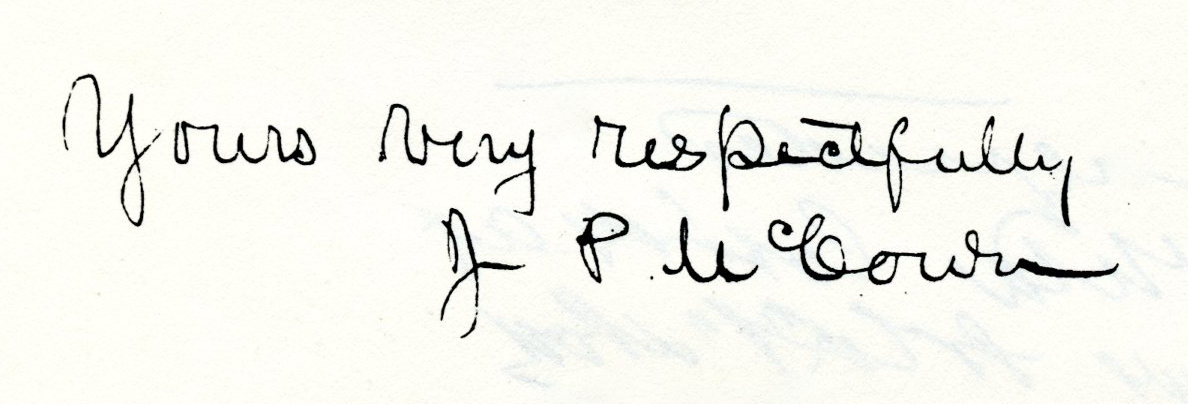 Yours very respectfully
J P McCown